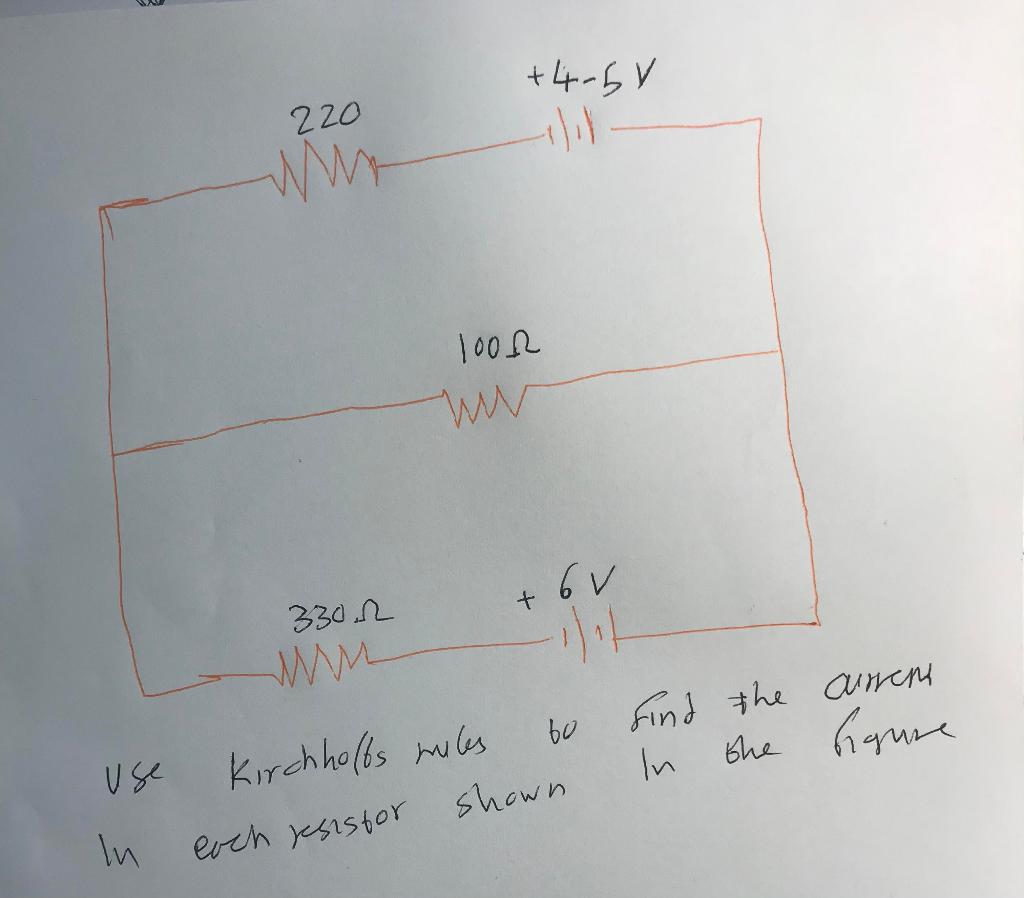 +4-5 V
220
100Ω
+ 6 V
330Ω
Use Kirchhoffs rules to find the current
In each resistor shown In the figure